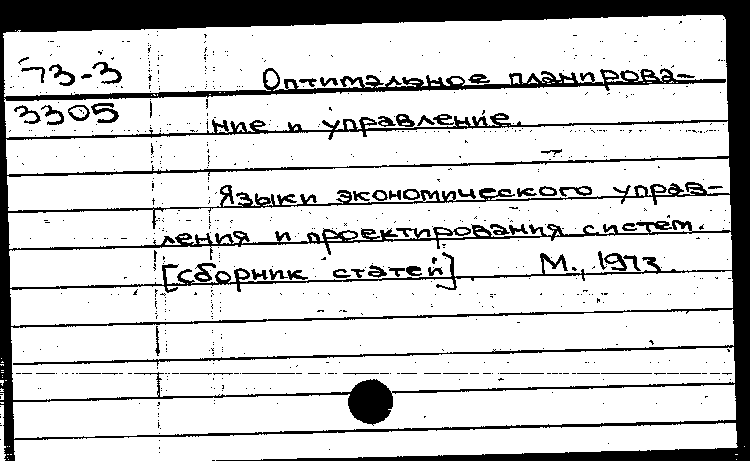 73-3
Оптимальное планирова-
3305
ние и управление.
Языки экономического управ-
ления и проектирования систем.
[сборник статей]. М., 1973.